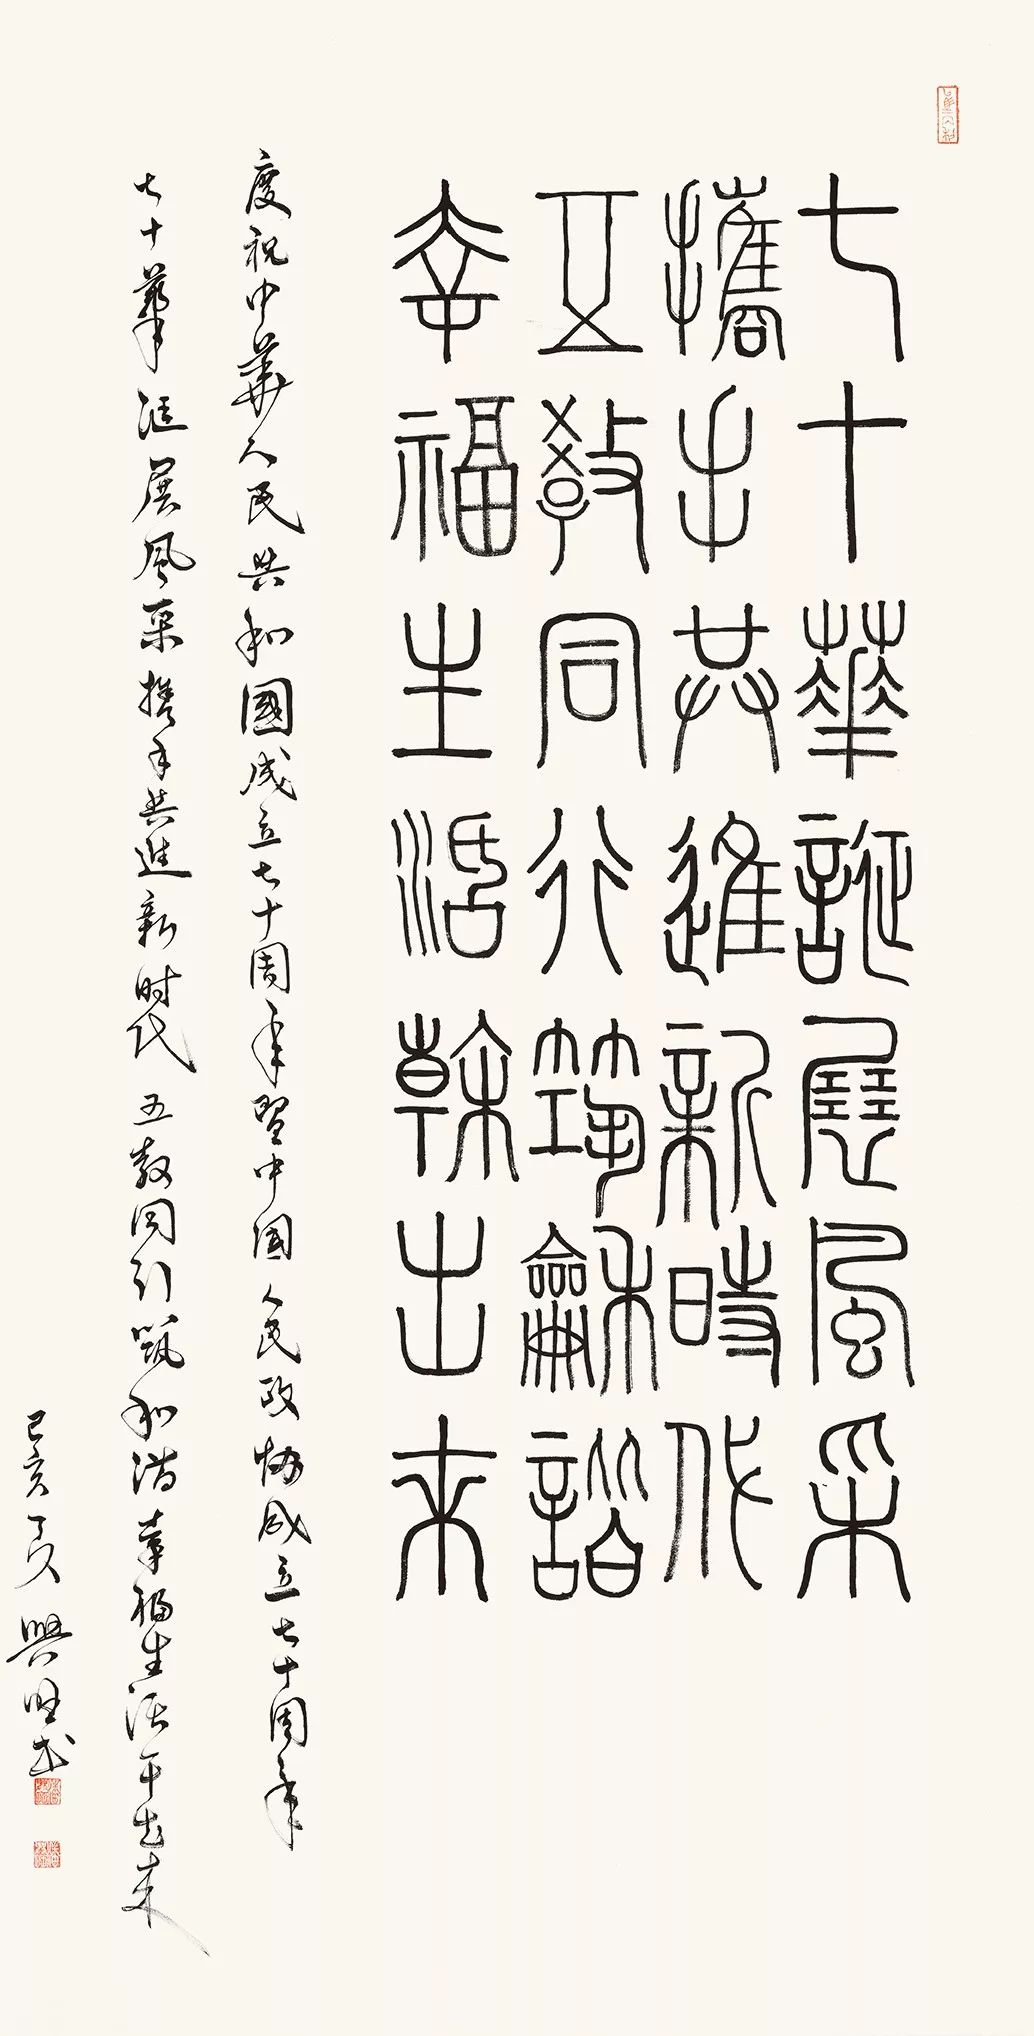 七十華誕展風采
攜手共進新時代
五教同行築龢諧
幸福生活幹出来
慶祝中華人民共和國成立七十周年暨中國人民政協成立七十周年
七十華誕展風采攜手共進新时代五教同行築和谐幸福生活干出来
己亥夏興旺书